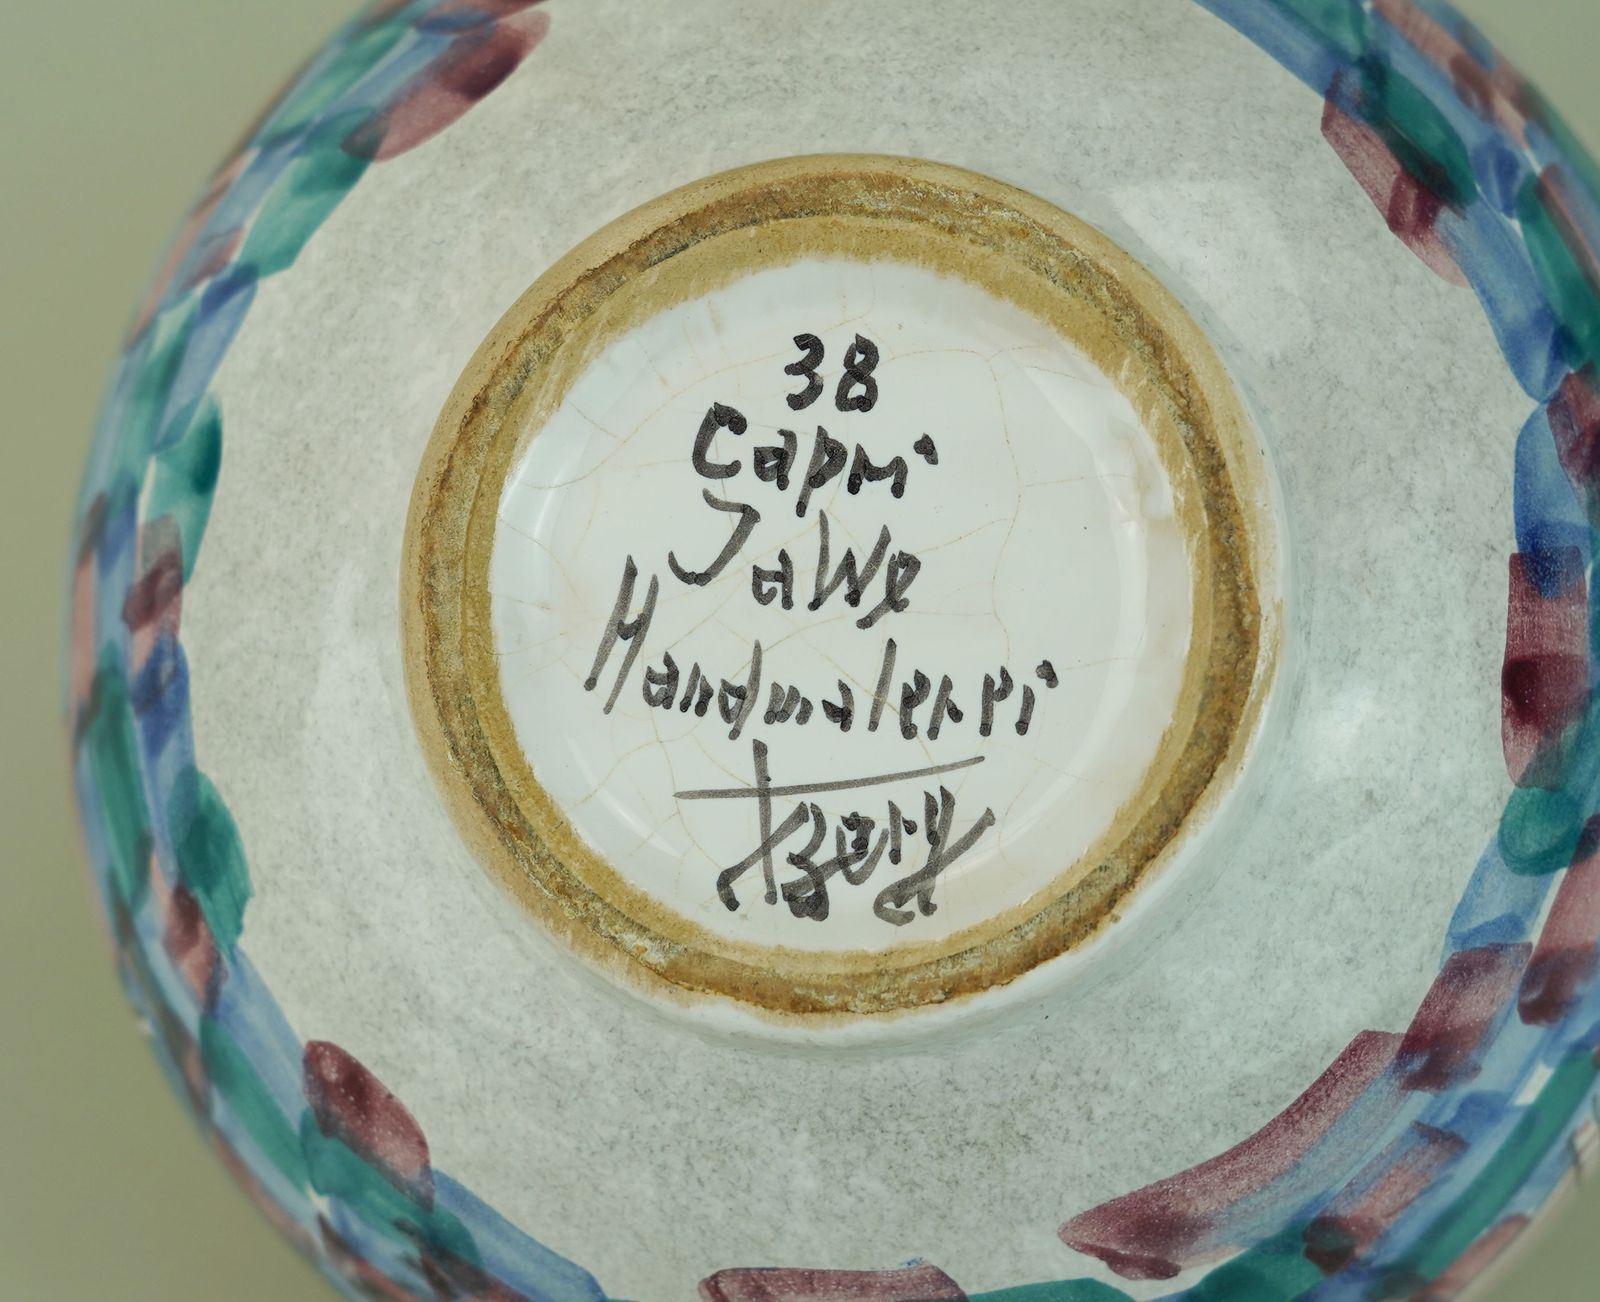 38
Capri
Jawe
Handmalerei